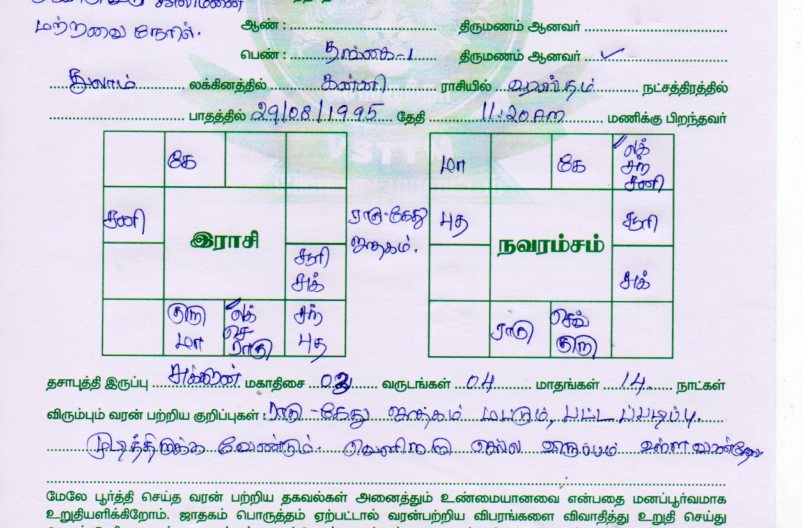 மற்றவை நேரில்.
ஆண் : திருமணம் ஆனவர்
பெண் : தங்கை-1 திருமணம் ஆனவர் ✓
துலாம் லக்கினத்தில் கன்னி ராசியில் ஹஸ்தம் நட்சத்திரத்தில்
பாதத்தில் 29/08/1995 தேதி 11:20 AM மணிக்கு பிறந்தவர்
VSTTM
கே
சனி
இராசி
சூரி
சுக்
குரு மா
லக் செ ராகு
சந் புத
ராகு-கேது
ஜாதகம்.
மா கே லக் சந் சனி
புத சூரி
நவரம்சம்
சுக்
ராகு செவ் குரு
தசாபுத்தி இருப்பு மகாதிசை 03 வருடங்கள் 04 மாதங்கள் 14 நாட்கள்
விரும்பும் வரன் பற்றிய குறிப்புகள் : ராகு-கேது ஜாதகம் மட்டும், பட்டப்படிப்பு.
முடித்திருக்க வேண்டும். வெளிநாடு செல்ல விருப்பம் உள்ள
மேலே பூர்த்தி செய்த வரன் பற்றிய தகவல்கள் அனைத்தும் உண்மையானவை என்பதை மனப்பூர்வமாக
உறுதியளிக்கிறோம். ஜாதகம் பொருத்தம் ஏற்பட்டால் வரன்பற்றிய விபரங்களை விவாதித்து உறுதி செய்து